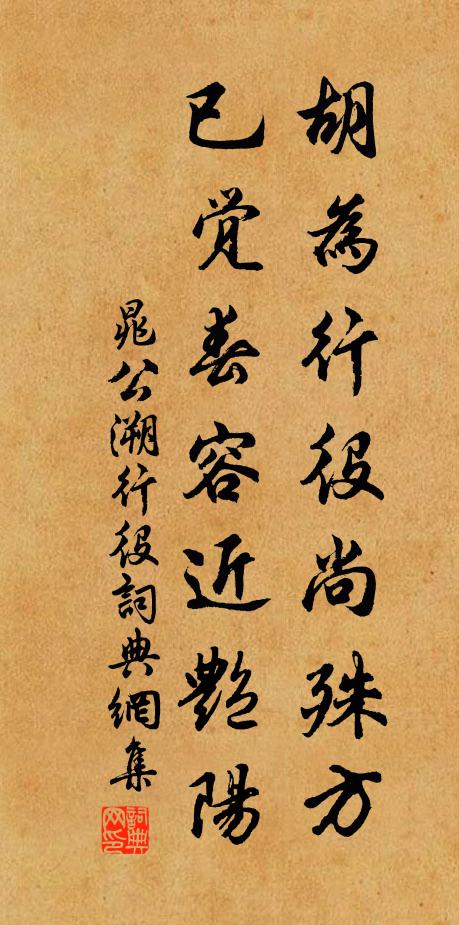 胡為行役尚殊方
已覺春容近艷陽
晁公溯行役詞典網集
詞典网印